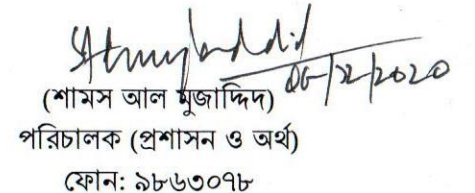 06/12/2020
(শামস আল মুজাদ্দিদ)
পরিচালক (প্রশাসন ও অর্থ)
ফোন: ৯৮৬৩০৭৮